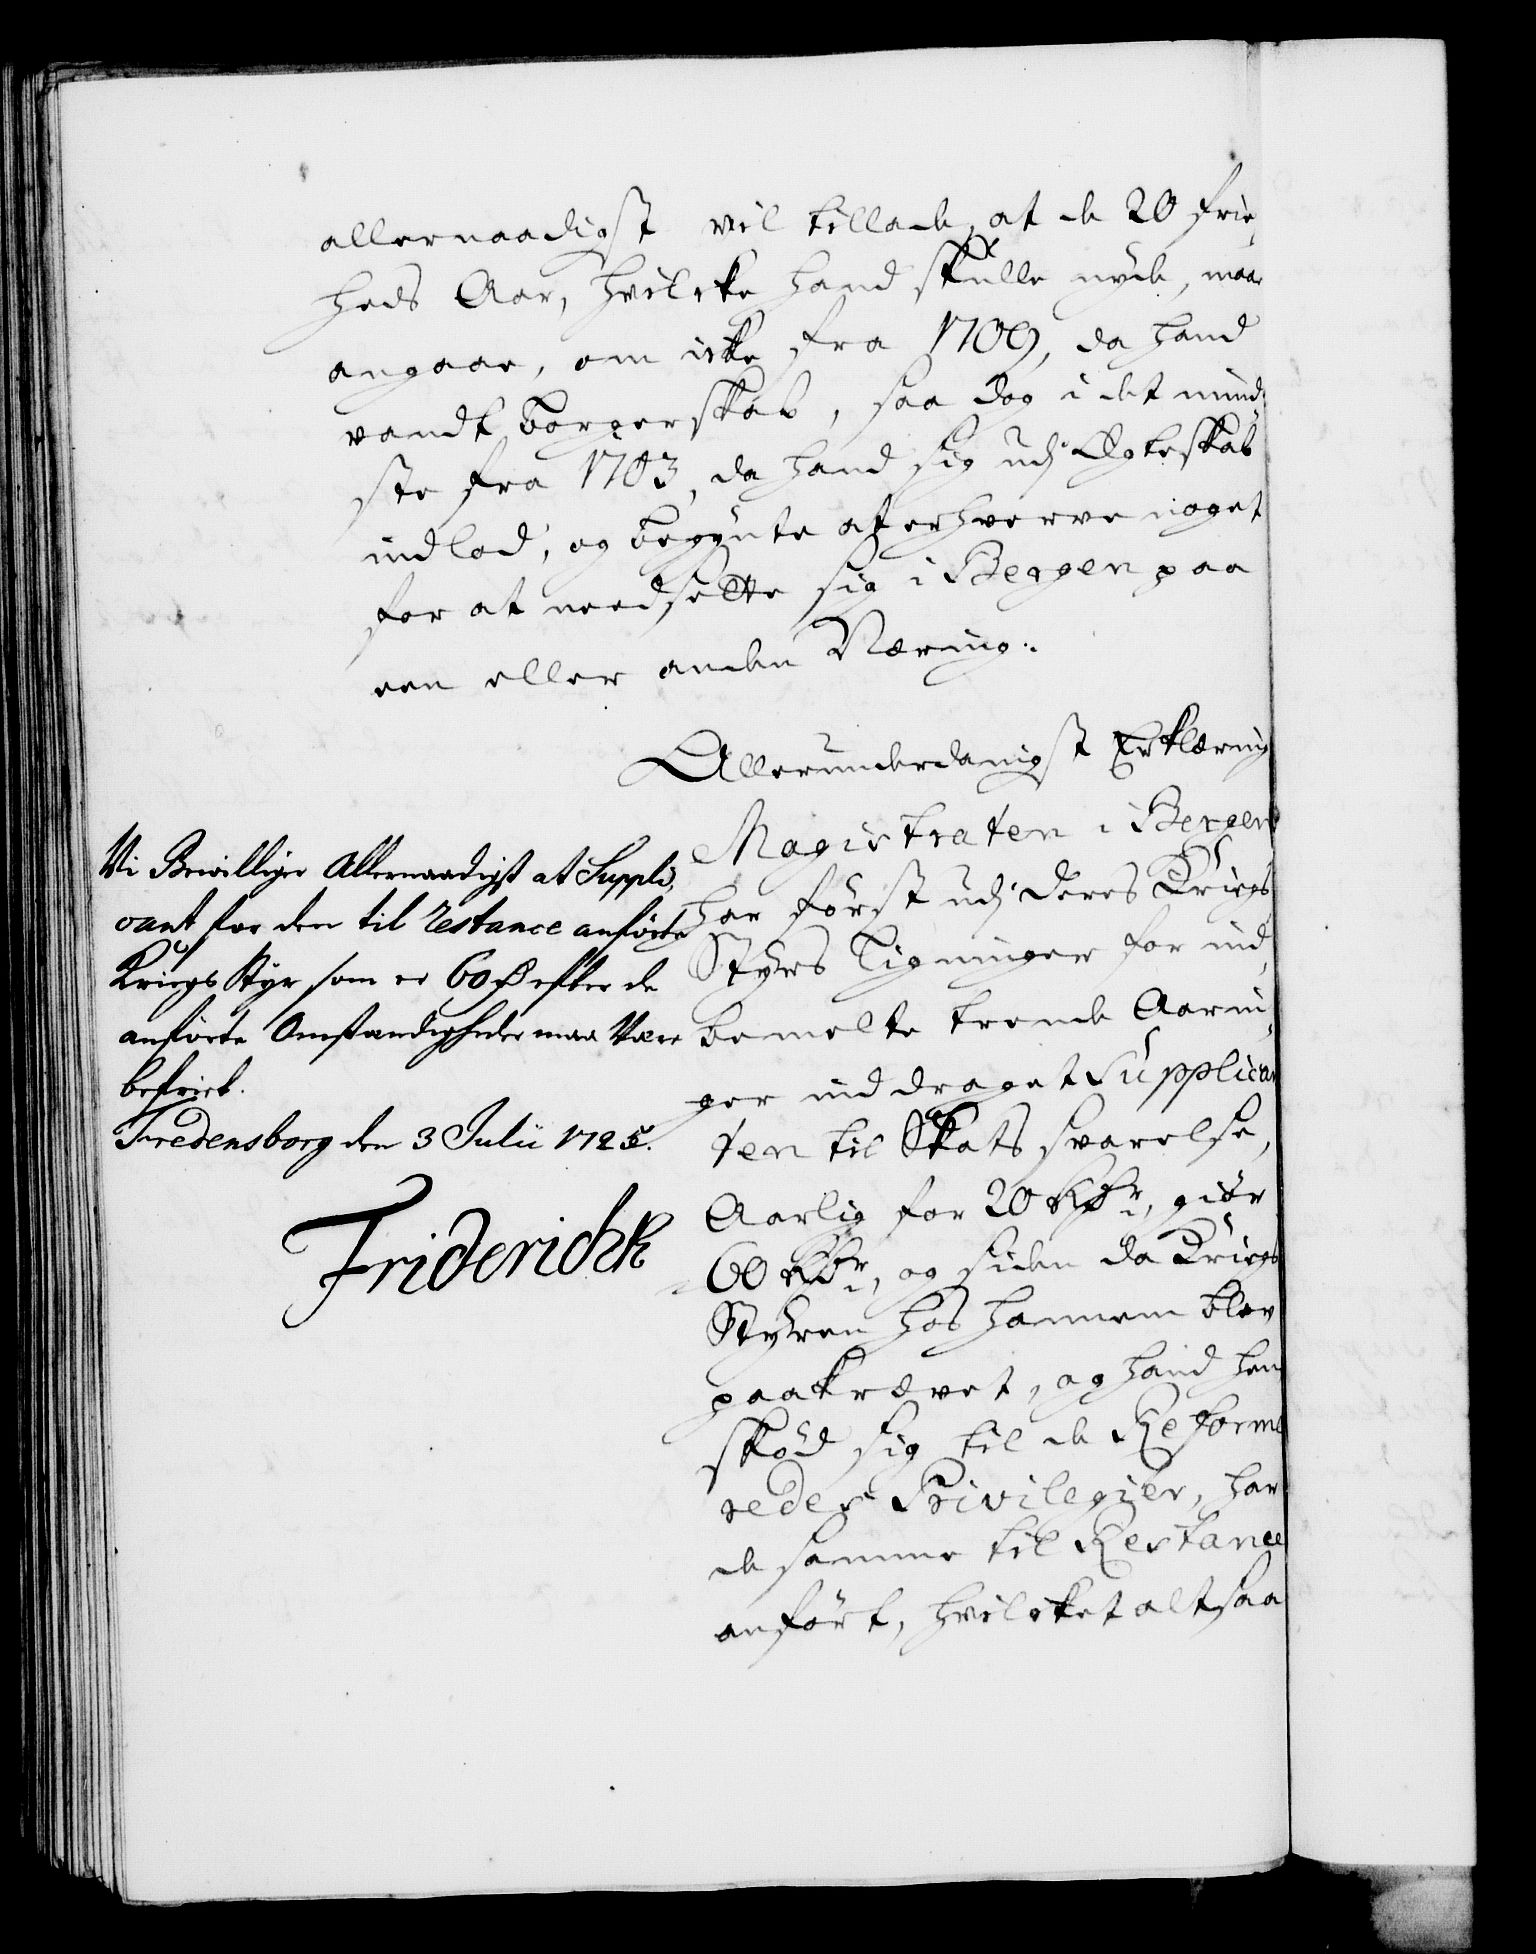 allernaadigst vil tillade, at de 20 frie,
heds Aar, hvilcke hand skulle nyde, maa
angaae, om icke fra 1709, da hand
vandt borgerskab, saa dog i det mind,
ste fra 1703, da hand sig udj Ægteskab
indlod, og begynte at erhverve noget
for at needsette sig i Bergen paa
een eller anden Næring:.
Allerunderdanigst Erklæring
Magistraten i Bergen
har først udj deres Kriegs
Styrs Ligninger for ind,
bemelte trende Aarin,
ger inddraget Supplican
ten til Skats svarelse,
Aarlig for 20 Rdr, giør
60 Rdr, og siden da Kriegs
Styren hos hannem blev
paakrævet, og hand hen
skød sig til de Reforme
redes Privilegier, har
de samme til Restance
anført, hvilcket altsaa
Vi Bewilliger Allernaadigst at Suppli,
cant for den til restance anførte
Kriegs Styr som er 60 Rd efter de
anførte Omstændigheder maa Være
befriet.
Fredensborg den 3 Julii 1725.
Friderichk